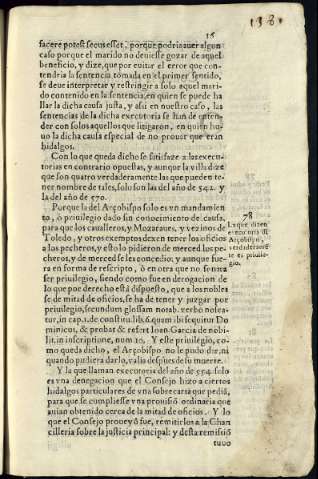 138.
16
facere potest secus esset, porque podria auer algun
caso porque el marido no deuiesse gozar de aquel
beneficio, y dize, que por euitar el error que con-
tendria la sentencia tomada en el primer sentido,
se deue interpretar y restringir a solo aquel mari-
do contenido en la sentencia, en quien se puede ha
llar la dicha causa justa, y assi en nuestro caso, las
sentencias de la dicha executoria se han de enten-
der con solos aquellos que litigaron, en quien hu-
uo la dicha causa especial de no prouar que eran
hidalgos.
Con lo que queda dicho se satisfaze a las execu-
torias en contrario opuestas, y aunque la villa dize
que son quatro verdaderamente las que pueden te-
ner nombre de tales, solo son las del año de 542. y
la del año de 570.
Porque la del Arçobispo solo es vn mandamien
to, ò priuilegio dado sin conocimiento de causa,
para que los caualleros, y Mozaraues, y vezinos de
Toledo, y otros exemptos dexen tener los oficios
a los pecheros, y esto lo pidieron de merced los pe-
cheros, y de merced se les concedio: y aunque fue-
ra en forma de rescripto, ò en otra que no fuera
ser priuilegio, siendo como fue en derogacion de
lo que por derecho està dispuesto, que a los nobles
se de mitad de oficios, se ha de tener y juzgar por
priuilegio, secundum glossam notab. verbo nolea-
tur, in cap. 1. de constitu. lib. 6. quam ibi sequitur Do
minicus, & probat & refert Ioan Garcia de nobi-
lit. in inscriptione, num. 10. Y este priuilegio, co-
mo queda dicho, el Arçobispo no le pudo dar, ni
quando pudiera darlo, valia despues de su muerte.
Y la que llaman executoria del año de 594. solo
es vna denegacion que el Consejo hizo a ciertos
hidalgos particulares de vna sobrecarta que pedia,
para que se cumpliesse vna prouisiõ ordinaria que
auian obtenido cerca de la mitad de oficios. Y lo
que el Consejo proueyò fue, remitirlos a la Chan
cilleria sobre la justicia principal: y desta remissiõ
tuuo
78
La que dizen
executoria del
Arçobispo,
verdaderamẽ
te es priuile-
gio.